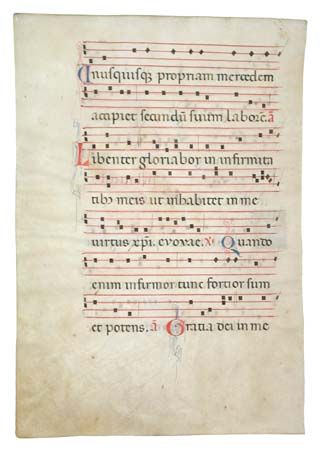 Unusquisq; propriam mercedem
accipiet secundũ suum laborẽ. a
Libenter gloriabor in infirmita
tib; meis ut inhabitet in me
virtus xp̃i. evovae. v Quanto
enim infirmor tunc fortior sum
et potens. a Gratia dei in me